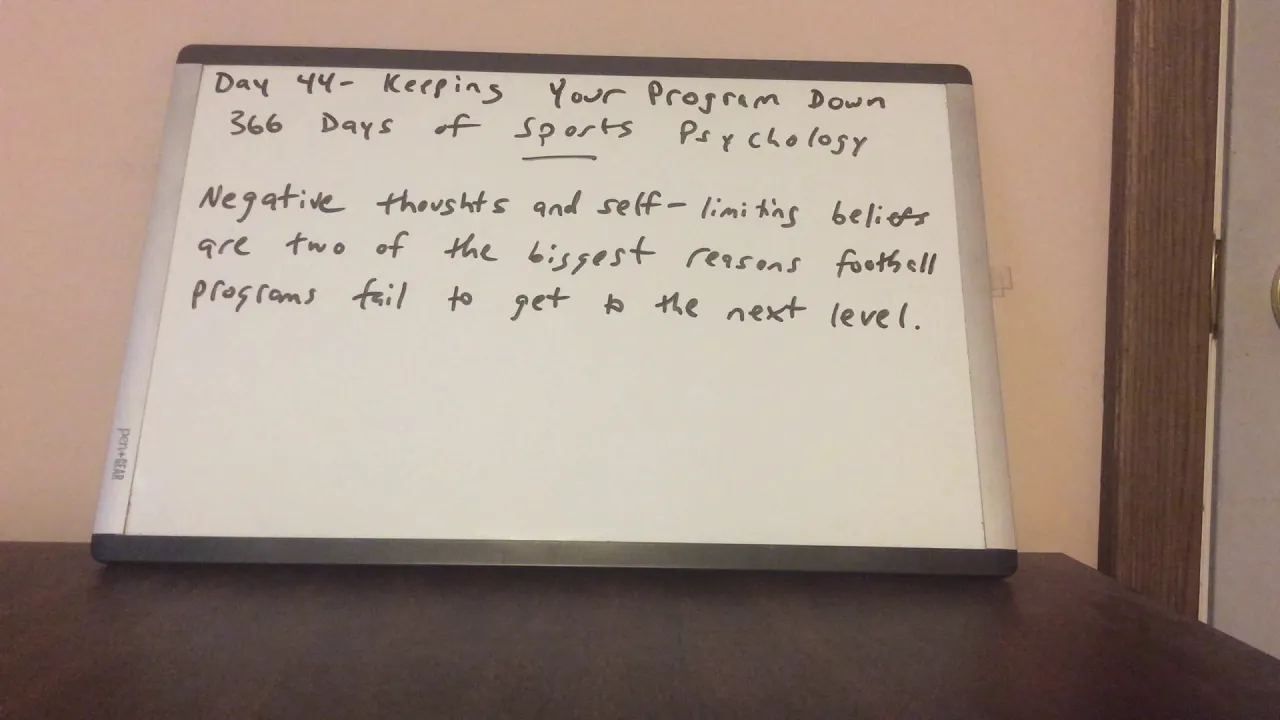 Day 44- Keeping Your Program Down
366 Days of Sports Psychology
Negative thoughts and self-limiting beliefs
are two of the biggest reasons football
programs fail to get to the next level.
pen+GEAR